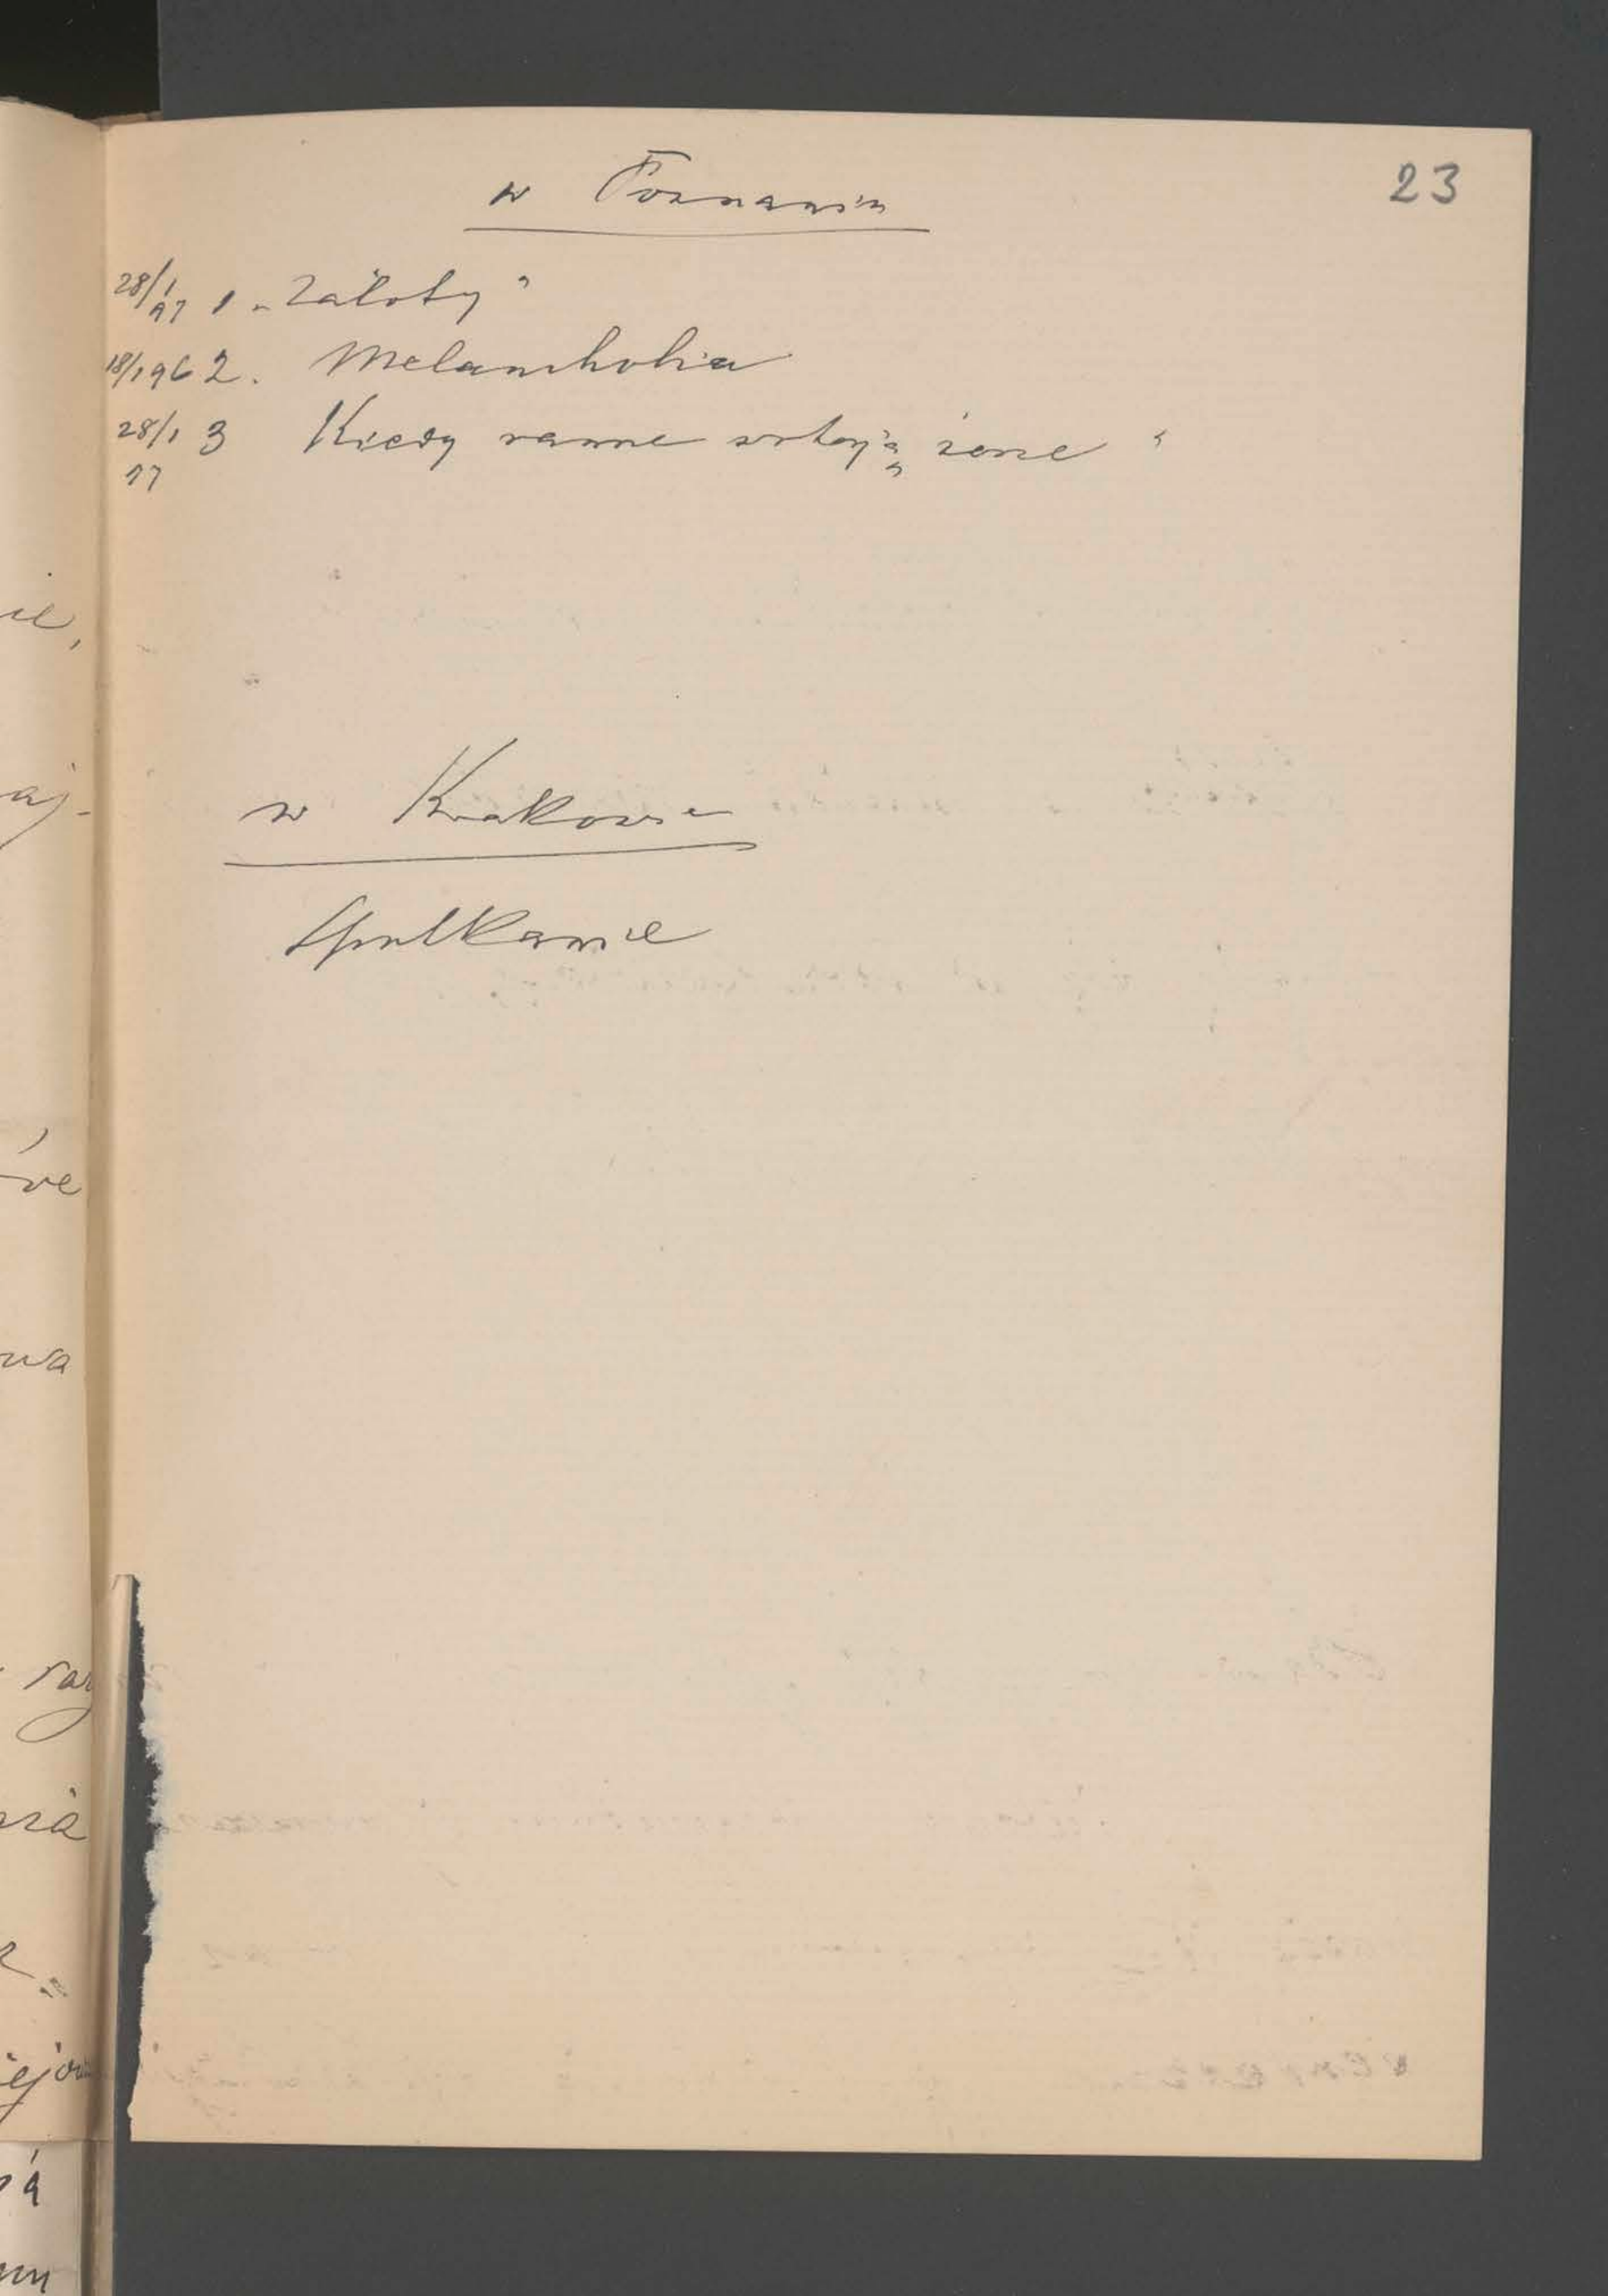 23
w Poznaniu
28/1 97 1 „Żałoby"
18/1 96 2. Melancholia
28/1 3 Kiedy ranne wstają zorze "
97
w Krakowie
Spotkanie